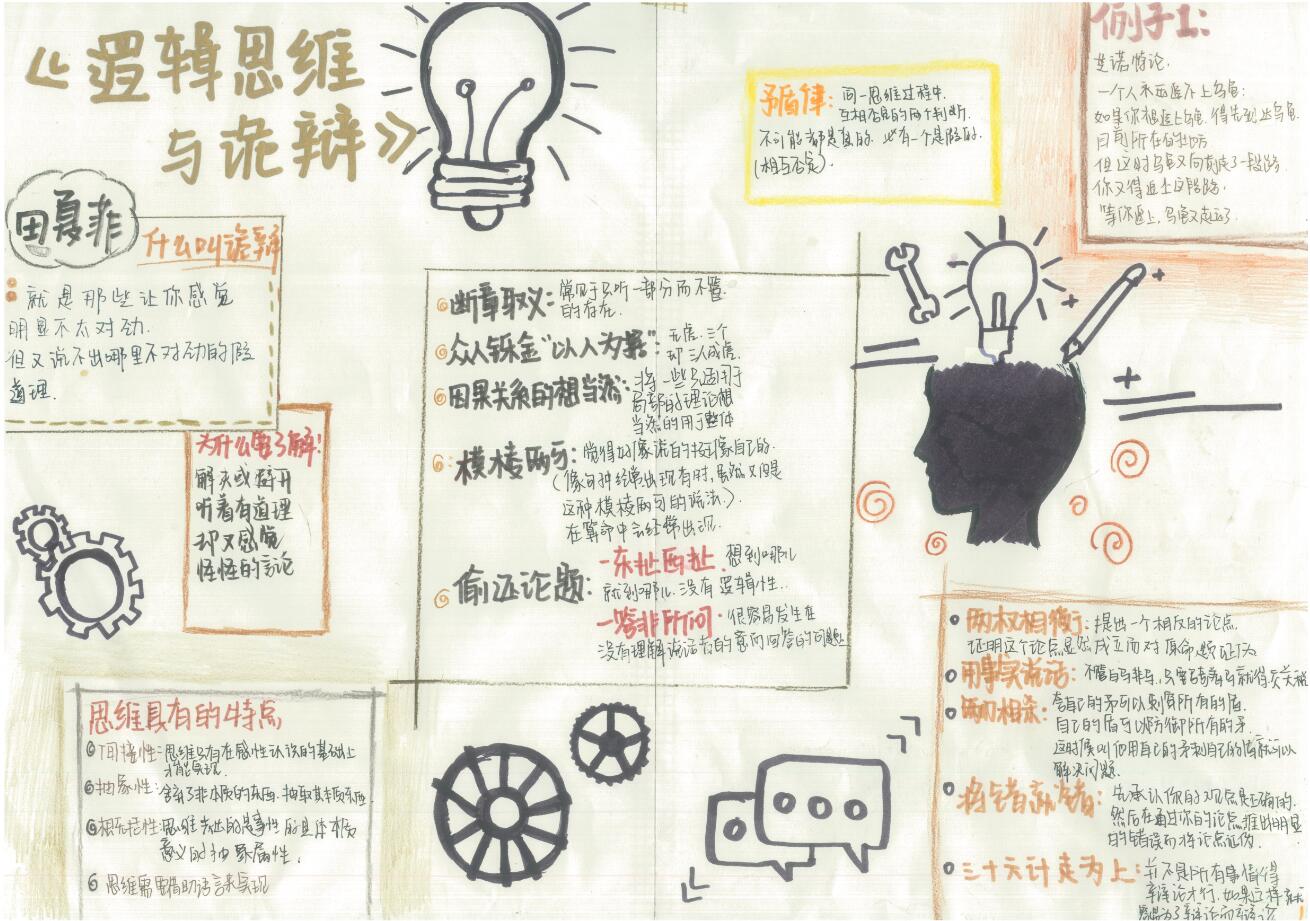 《逻辑思维
与诡辩》
田夏菲
什么叫诡辩
就是那些让你感觉
明显不太对劲.
但又说不出哪里不对劲的假
道理.
为什么要了解!
解灭或避开
听着有道理
却又感觉
怪怪的言论
思维具有的特点
间接性:思维只有在感性认识的基础上
才能实现.
抽象性:舍弃了非本质的东西.抽取其本质东西
思维
意义的抽象属性.
思维需要借助语言来实现
断章取义:常见于只听一部分而不管
的存在.
众人铄金"以人为据":无虎.三个
却三人成虎.
因果关系的想当然:将一些只适用于
局部的理论想
当然的用于整体
模棱两可:觉得好像说的挺像自己的.
(像句种经常出现有时,虽然又但是
这种模棱两可的说法.)
在算命中会经常出现.
偷证论题:一东扯西扯.想到哪儿
就到哪儿.没有逻辑性.
一答非所问.很容易发生在
没有理解说话者的意而回答的问题上
矛盾律:同一思维过程中.
互相否定的两个判断.
不可能都是真的.必有一个是假的.
(相互否定).
例子1:
芝诺悖论.
一个人永远追不上乌龟:
如果你想追上乌龟.得先到达乌龟
目前所在的地方
但这时乌龟又向前走了一段路
你又得追上这段路.
等你追上,乌龟又走远了.
两权相衡:提出一个相反的论点.
证明这个论点显然成立而对原命题证伪
用事实说话:不管白马非马,只要骑着马就得交关税
两刀相杀:拿自己的矛可以刺穿所有的盾.
自己的盾可以防御所有的矛.
这时候叫他用自己的矛刺自己的盾就可以
解决问题.
将错就错:先承认你的观点是正确的.
然后在通过你的论点推出明显
的错误而将论点证伪.
三十六计走为上:并不是所有事值得
辩论才行.如果这样就